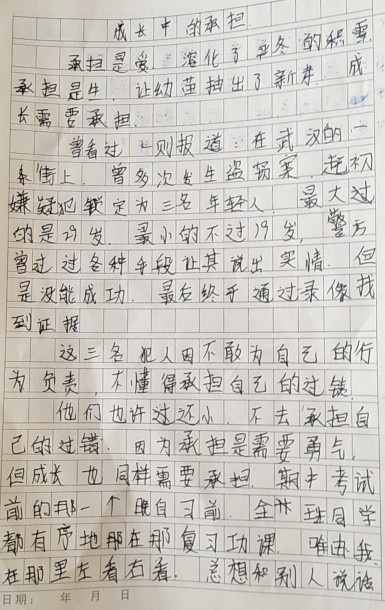 成长中的承担
承担是爱，溶化了寒冬的积雪，
承担是生，让幼苗抽出了新芽，成
长需要承担。
曾看过一则报道：在武汉的一
条街上，曾多次发生盗窃案，起初
嫌疑犯锁定为三名年轻人，最大过
的是29岁，最小的不过19岁，警方
曾过过各种手段让其说出实情，但
是没能成功，最后终于通过录像找
到证据
这三名犯人因不敢为自己的行
为负责，不懂得承担自己的过错。
他们也许过还小，不去承担自
己的过错，因为承担是需要勇气，
但成长也同样需要承担，期中考试
前的那一个晚自习前，全班同学
都有序地那在那复习功课，唯由我
在那里左看右看，总想和别人说话
日期： 年 月 日